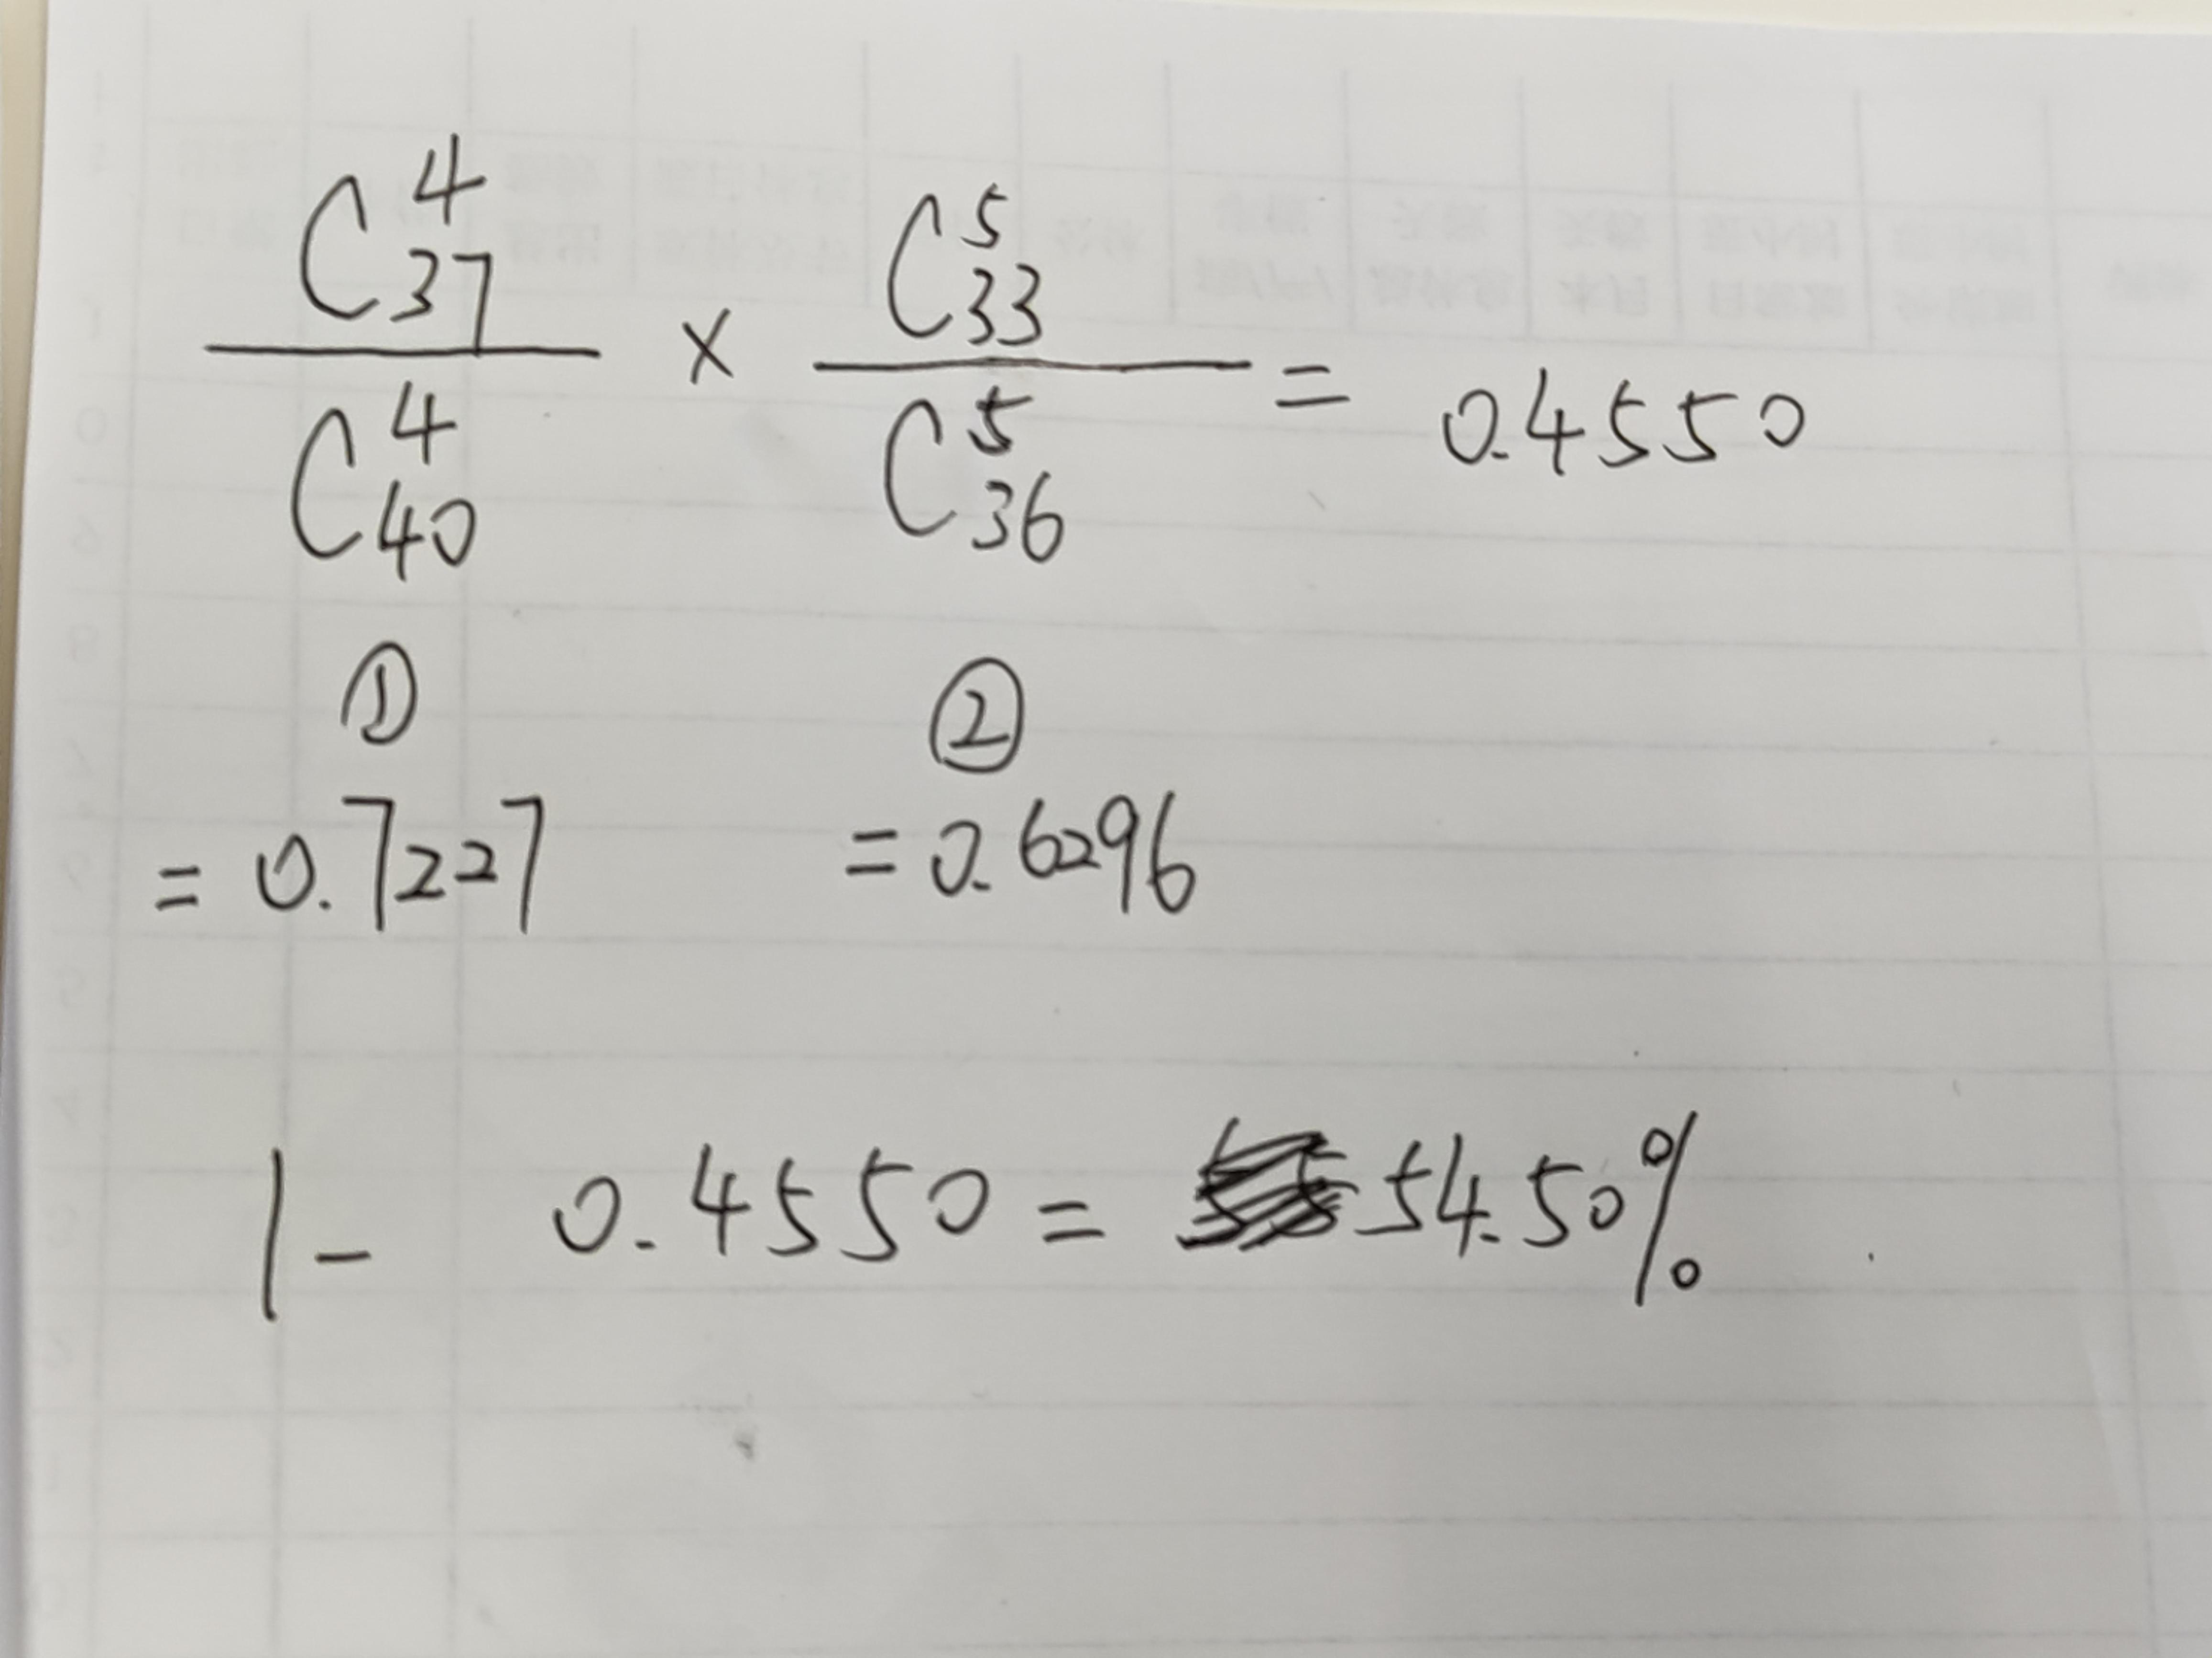 C₃₇⁴ / C₄₀⁴ × C₃₃⁵ / C₃₆⁵ = 0.4550
① ②
= 0.7227 = 0.6296
1 - 0.4550 = 54.50%